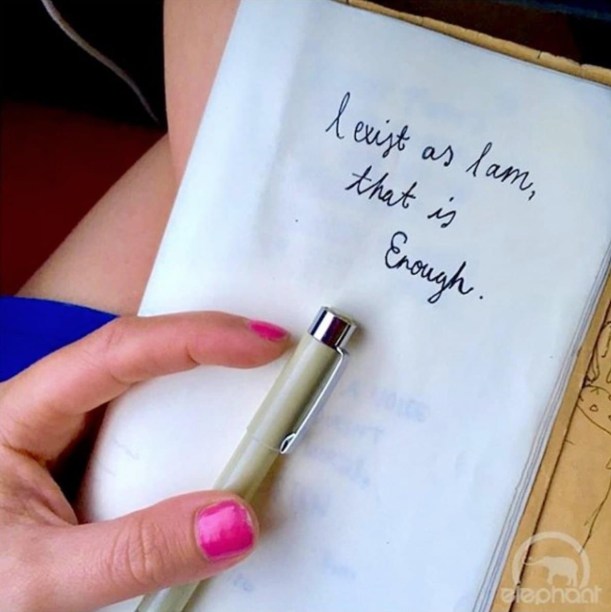 I exist as I am,
that is
Enough.
elephant